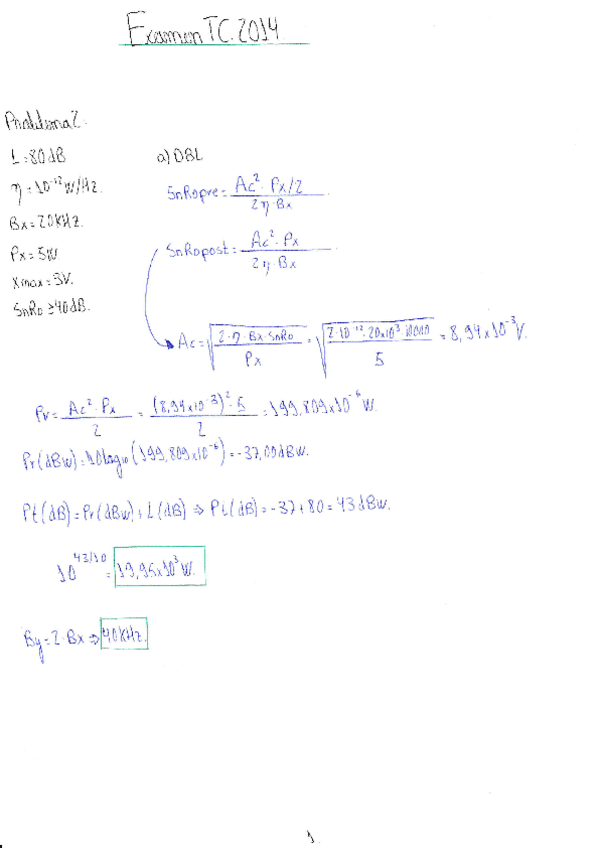 Examen TC.2014
Problema 2.
L=80dB
η=10⁻¹²W/Hz.
Bx=20kHz.
Px=5W.
Xmax=3V.
SnRo≥40dB.
a) DBL
SnRopre = Ac²·Px/2 / 2η·Bx
SnRopost = Ac²·Px / 2η·Bx
Ac = √(2·η·Bx·SnRo / Px) = √(2·10⁻¹²·20x10³·10000 / 5) = 8,94x10⁻³V.
Pr = Ac²·Px / 2 = (8,94x10⁻³)²·5 / 2 = 199,809x10⁻⁶W.
Pr(dBw) = 10log₁₀(199,809x10⁻⁶) = -37,00dBw.
Pt(dB) = Pr(dBw) + L(dB) ⇒ Pt(dB) = -37+80 = 43dBw.
10^43/10 = 19,95x10³W.
By = 2·Bx ⇒ 40kHz.
1